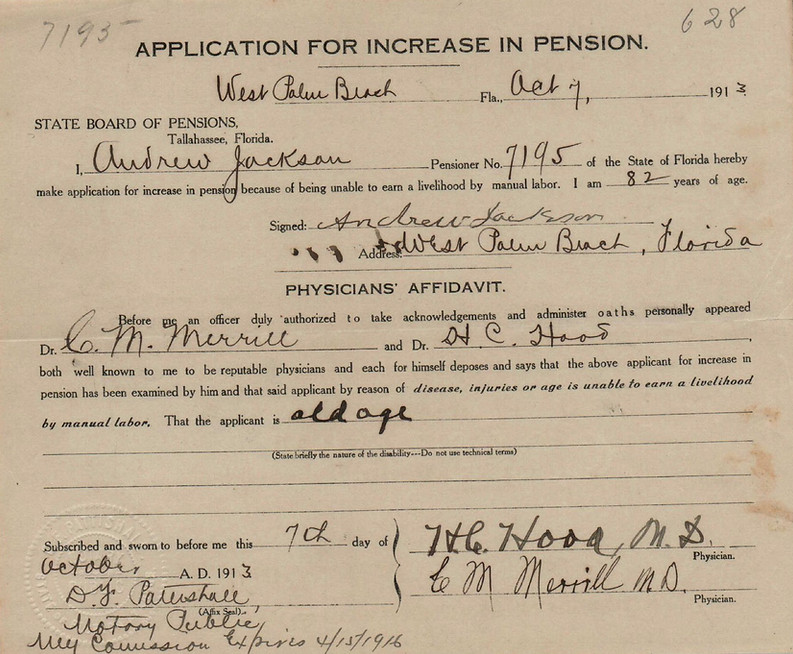 7195
628
APPLICATION FOR INCREASE IN PENSION.
West Palm Beach Fla., Oct 7, 1913
STATE BOARD OF PENSIONS,
Tallahassee, Florida.
I, Andrew Jackson Pensioner No. 7195 of the State of Florida hereby
make application for increase in pension because of being unable to earn a livelihood by manual labor. I am 82 years of age.
Signed: Andrew Jackson
Address: West Palm Beach, Florida
PHYSICIANS' AFFIDAVIT.
Before me an officer duly authorized to take acknowledgements and administer oaths personally appeared
Dr. C. M. Merrill and Dr. H C. Hood,
both well known to me to be reputable physicians and each for himself deposes and says that the above applicant for increase in
pension has been examined by him and that said applicant by reason of disease, injuries or age is unable to earn a livelihood
by manual labor. That the applicant is old age
(State briefly the nature of the disability---Do not use technical terms)
Subscribed and sworn to before me this 7th day of
October A. D. 1913
D. F.
(Affix Seal)
Notary Public
My Comission Expires 4/15/1916
H.C. Hood, M.D.
Physician.
C M Merrill M.D.
Physician.